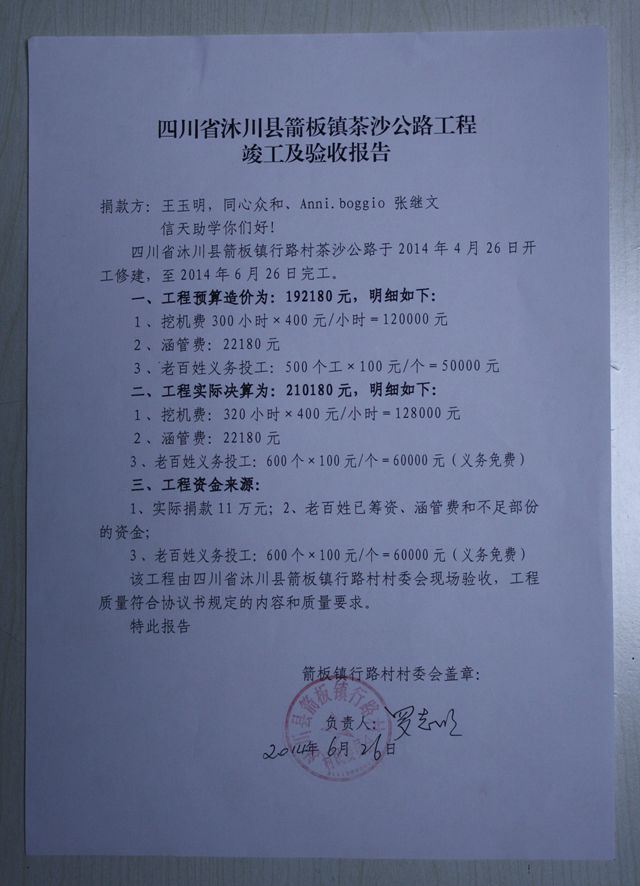 四川省沐川县箭板镇茶沙公路工程
竣工及验收报告
捐款方：王玉明，同心众和、Anni.boggio 张继文
信天助学你们好！
四川省沐川县箭板镇行路村茶沙公路于 2014 年 4 月 26 日开
工修建，至 2014 年 6 月 26 日完工。
一、工程预算造价为：192180 元，明细如下：
1、挖机费 300 小时×400 元/小时＝120000 元
2、涵管费：22180 元
3、老百姓义务投工：500 个工×100 元/个＝50000 元
二、工程实际决算为：210180 元，明细如下：
1、挖机费：320 小时×400 元/小时＝128000 元
2、涵管费：22180 元
3、老百姓义务投工：600 个×100 元/个＝60000 元（义务免费）
三、工程资金来源：
1、实际捐款 11 万元；2、老百姓已筹资、涵管费和不足部份
的资金；
3、老百姓义务投工：600 个×100 元/个＝60000 元（义务免费）
该工程由四川省沐川县箭板镇行路村村委会现场验收，工程
质量符合协议书规定的内容和质量要求。
特此报告
箭板镇行路村村委会盖章：
负责人：罗志明
2014年 6月 26日
川县箭板镇行路村